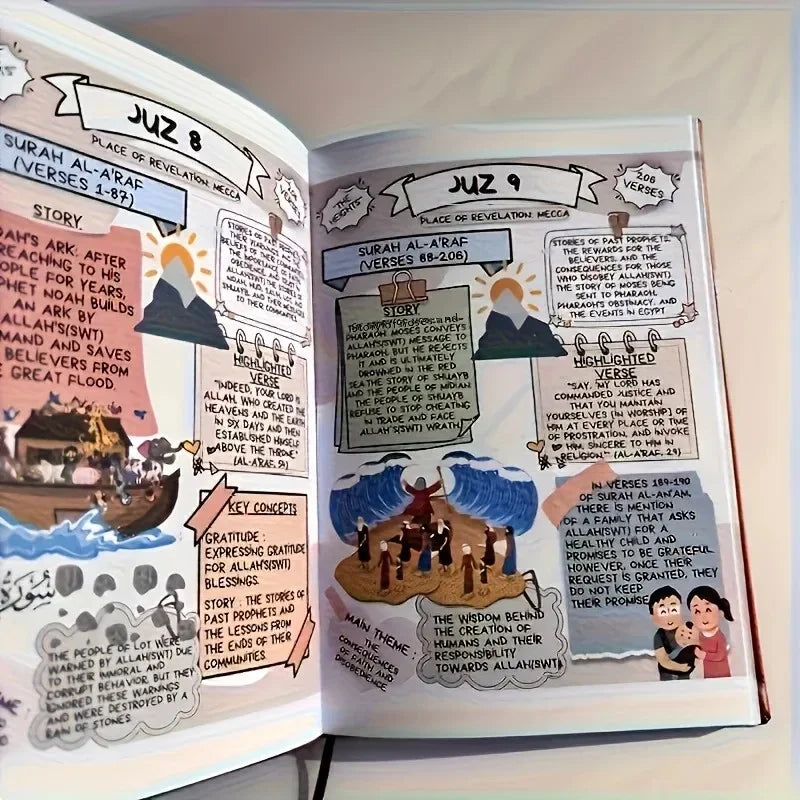 JUZ 8
PLACE OF REVELATION: MECCA
SURAH AL-A'RAF
(VERSES 1-87)
STORY
ARK: AFTER
PREACHING TO HIS
PEOPLE FOR YEARS,
PROPHET NOAH BUILDS
AN ARK BY
ALLAH'S(SWT)
AND SAVES
BELIEVERS FROM
GREAT FLOOD.
STORIES OF PAST PROPHETS,
HIGHLIGHTED
VERSE
"INDEED, YOUR LORD IS
ALLAH, WHO CREATED THE
HEAVENS AND THE EARTH
IN SIX DAYS AND THEN
ESTABLISHED HIMSELF
ABOVE THE THRONE"
(AL-A'RAF, 54)
KEY CONCEPTS
GRATITUDE :
EXPRESSING GRATITUDE
FOR ALLAH'S(SWT)
BLESSINGS.
STORY : THE STORIES OF
PAST PROPHETS AND
THE LESSONS FROM
THE ENDS OF THEIR
COMMUNITIES.
سورة
THE PEOPLE OF LOT WERE
WARNED BY ALLAH(SWT) DUE
TO THEIR IMMORAL AND
CORRUPT BEHAVIOR, BUT THEY
IGNORED THESE WARNINGS
AND WERE DESTROYED BY A
RAIN OF STONES
THE
HEIGHTS
JUZ 9
206
VERSES
PLACE OF REVELATION: MECCA
SURAH AL-A'RAF
(VERSES 88-206)
STORY
PHARAOH: MOSES CONVEYS
ALLAH'S(SWT) MESSAGE TO
PHARAOH, BUT HE REJECTS
IT AND IS ULTIMATELY
DROWNED IN THE RED
SEA. THE STORY OF SHUAYB
AND THE PEOPLE OF MIDIAN
THE PEOPLE OF SHUAYB
REFUSE TO STOP CHEATING
IN TRADE AND FACE
ALLAH'S(SWT) WRATH
STORIES OF PAST PROPHETS,
THE REWARDS FOR THE
BELIEVERS, AND THE
CONSEQUENCES FOR THOSE
WHO DISOBEY ALLAH(SWT)
THE STORY OF MOSES BEING
SENT TO PHARAOH,
PHARAOH'S OBSTINACY, AND
THE EVENTS IN EGYPT
HIGHLIGHTED
VERSE
"SAY, 'MY LORD HAS
COMMANDED JUSTICE AND
THAT YOU MAINTAN
YOURSELVES (IN WORSHIP) OF
HIM AT EVERY PLACE OR TIME
OF PROSTRATION, AND INVOKE
HIM, SINCERE TO HIM IN
RELIGION.'" (AL-A'RAF, 29)
IN VERSES 189-190
OF SURAH AL-AN'AM,
THERE IS MENTION
OF A FAMILY THAT ASKS
ALLAH(SWT) FOR A
HEALTHY CHILD AND
PROMISES TO BE GRATEFUL.
HOWEVER, ONCE THEIR
REQUEST IS GRANTED, THEY
DO NOT KEEP
THEIR PROMISE
MAIN THEME :
THE
CONSEQUENCES
OF FAITH AND
DISOBEDIENCE
THE WISDOM BEHIND
THE CREATION OF
HUMANS AND THEIR
RESPONSIBILITY
TOWARDS ALLAH(SWT)